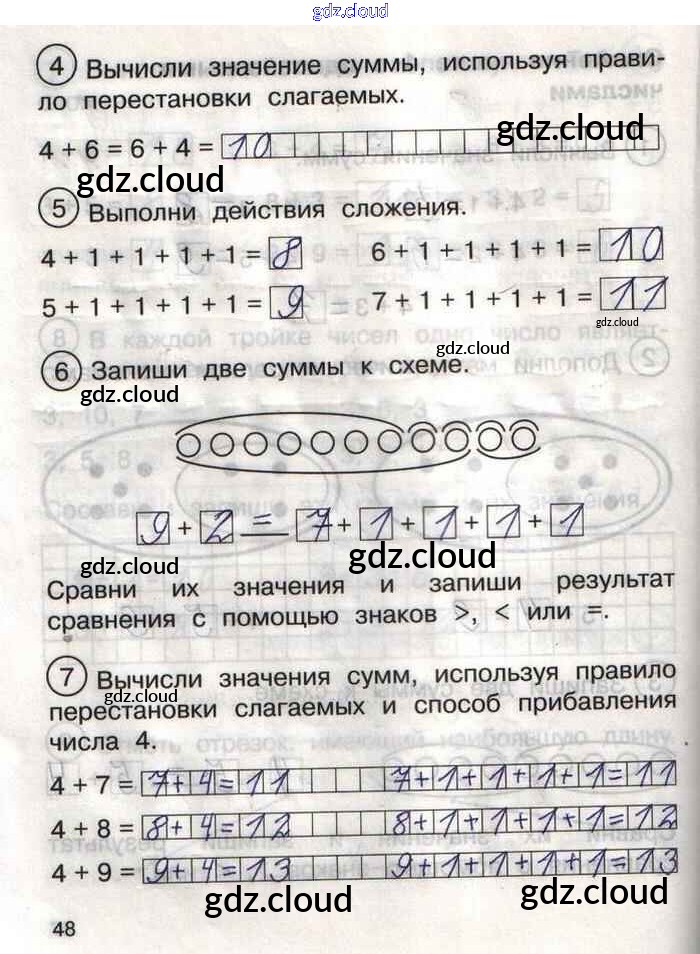 gdz.cloud
4 Вычисли значение суммы, используя прави-
ло перестановки слагаемых.
4 + 6 = 6 + 4 = 10
gdz.cloud
gdz.cloud
5 Выполни действия сложения.
4 + 1 + 1 + 1 + 1 = 8 6 + 1 + 1 + 1 + 1 = 10
5 + 1 + 1 + 1 + 1 = 9 7 + 1 + 1 + 1 + 1 = 11
gdz.cloud
gdz.cloud
6 Запиши две суммы к схеме.
gdz.cloud
9 + 2 = 7 + 1 + 1 + 1 + 1
gdz.cloud
gdz.cloud
Сравни их значения и запиши результат
сравнения с помощью знаков >, < или =.
7 Вычисли значения сумм, используя правило
gdz.cloud
перестановки слагаемых и способ прибавления
числа 4.
4 + 7 = 7+4=11 7+1+1+1+1=11
4 + 8 = 8+4=12 8+1+1+1+1=12
4 + 9 = 9+4=13 9+1+1+1+1=13
gdz.cloud
gdz.cloud
48